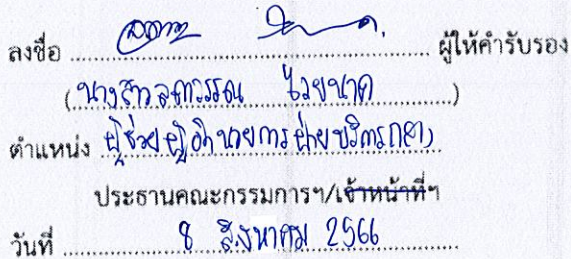 ลงชื่อ ........................ ผู้ให้คำรับรอง
(นางสาวลดาวรรณ ไวยนาค)
ตำแหน่ง ผู้ช่วยผู้อำนวยการฝ่ายบริการ
ประธานคณะกรรมการฯ/เจ้าหน้าที่ฯ
วันที่ 8 สิงหาคม 2566